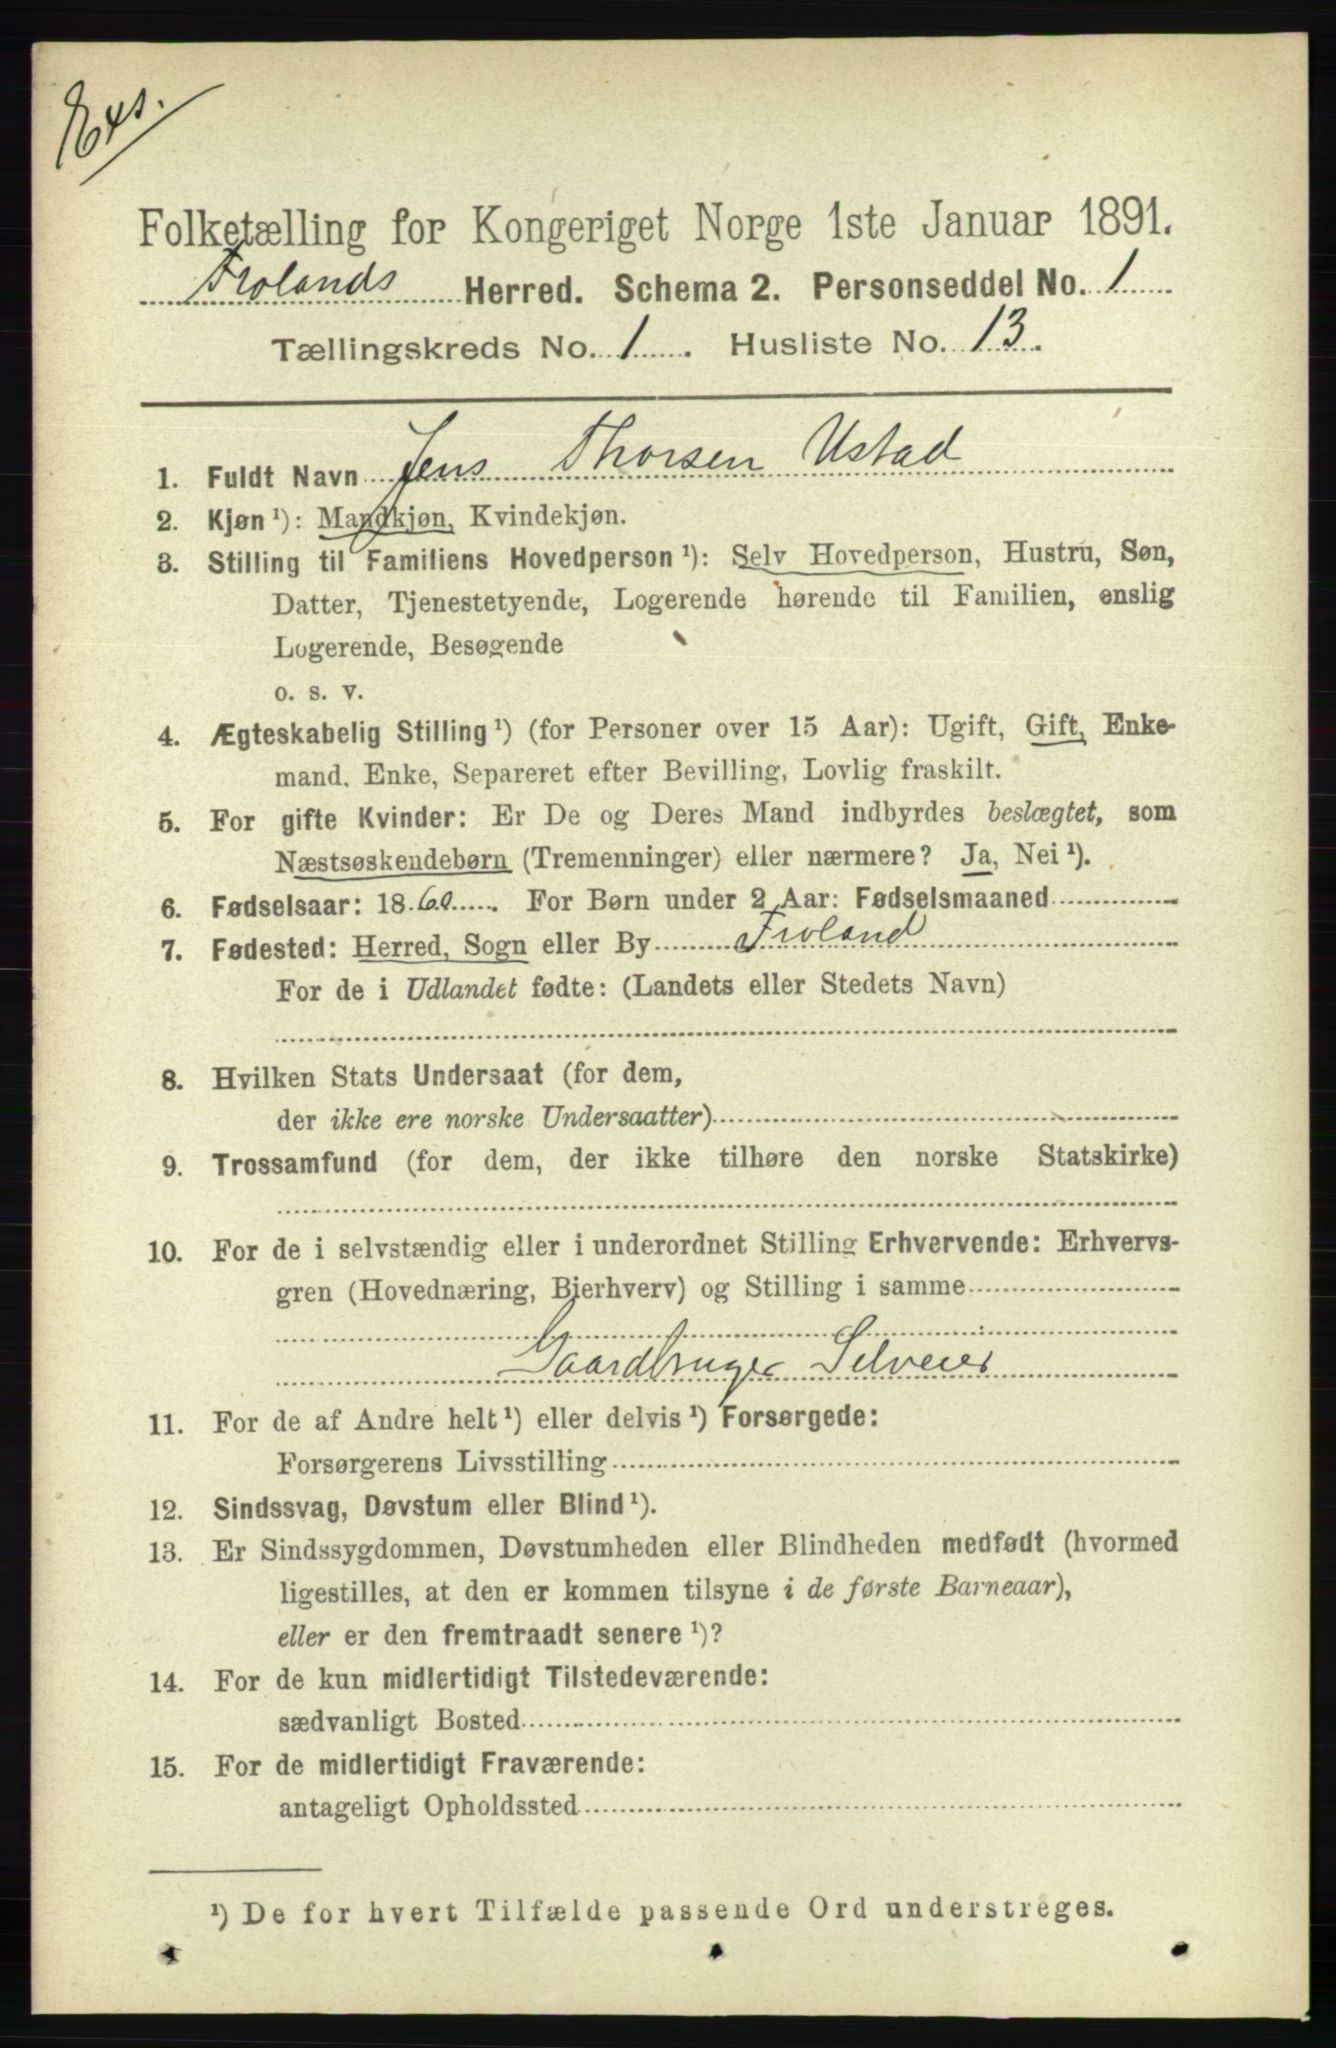 Exs.
Folketælling for Kongeriget Norge 1ste Januar 1891.
Frolands Herred. Schema 2. Personseddel No. 1
Tællingskreds No. 1. Husliste No. 13.
1. Fuldt Navn Jens Thorsen Ustad
2. Kjøn ¹): Mandkjøn, Kvindekjøn.
3. Stilling til Familiens Hovedperson ¹): Selv Hovedperson, Hustru, Søn,
Datter, Tjenestetyende, Logerende hørende til Familien, enslig
Logerende, Besøgende
o. s. v.
4. Ægteskabelig Stilling ¹) (for Personer over 15 Aar): Ugift, Gift, Enke-
mand, Enke, Separeret efter Bevilling, Lovlig fraskilt.
5. For gifte Kvinder: Er De og Deres Mand indbyrdes beslægtet, som
Næstsøskendebørn (Tremenninger) eller nærmere? Ja, Nei ¹).
6. Fødselsaar: 1860. For Børn under 2 Aar: Fødselsmaaned
7. Fødested: Herred, Sogn eller By Froland
For de i Udlandet fødte: (Landets eller Stedets Navn)
8. Hvilken Stats Undersaat (for dem,
der ikke ere norske Undersaatter)
9. Trossamfund (for dem, der ikke tilhøre den norske Statskirke)
10. For de i selvstændig eller i underordnet Stilling Erhvervende: Erhvervs-
gren (Hovednæring, Bierhverv) og Stilling i samme
Gaardbruger Selveier
11. For de af Andre helt ¹) eller delvis ¹) Forsørgede:
Forsørgerens Livsstilling
12. Sindssvag, Døvstum eller Blind ¹).
13. Er Sindssygdommen, Døvstumheden eller Blindheden medfødt (hvormed
ligestilles, at den er kommen tilsyne i de første Barneaar),
eller er den fremtraadt senere ¹)?
14. For de kun midlertidigt Tilstedeværende:
sædvanligt Bosted
15. For de midlertidigt Fraværende:
antageligt Opholdssted
¹) De for hvert Tilfælde passende Ord understreges.